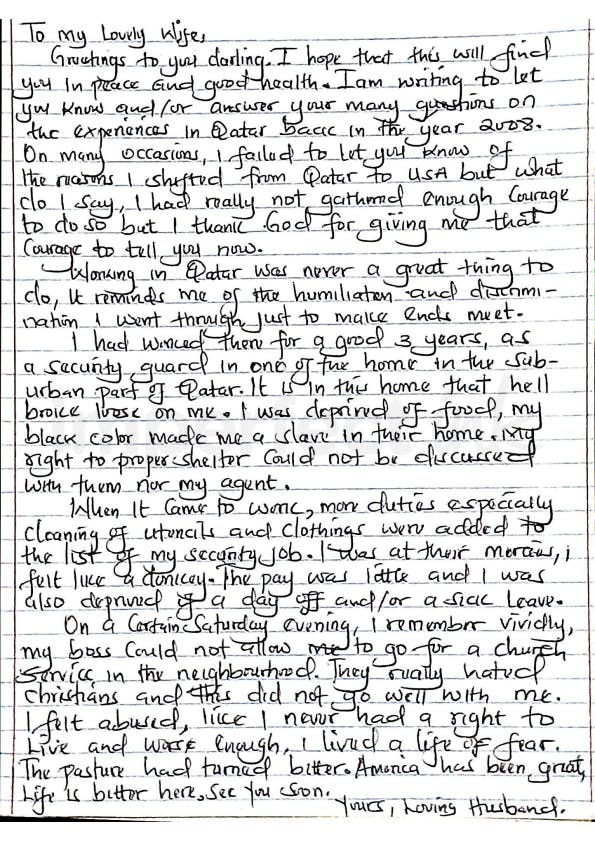 To my Lovely Wife,
Greetings to you darling. I hope that this will find
you in peace and good health. I am writing to let
you know and/or answer your many questions on
the experiences in Qatar back in the year 2008.
On many occasions, I failed to let you know of
the reasons I shifted from Qatar to USA but what
do I say, I had really not gathered enough courage
to do so but I thank God for giving me that
courage to tell you now.
Working in Qatar was never a great thing to
do, it reminds me of the humiliation and discrimi-
nation I went through just to make ends meet.
I had worked there for a good 3 years, as
a security guard in one of the home in the sub-
urban part of Qatar. It is in this home that hell
broke loose on me. I was deprived of food, my
black color made me a slave in their home. My
right to proper shelter could not be discussed
with them nor my agent.
When it came to work, more duties especially
cleaning of utencils and clothings were added to
the list of my security job. I was at their mercies, i
felt like a donkey. The pay was little and I was
also deprived of a day off and/or a sick leave.
On a certain Saturday evening, I remember vividly,
my boss could not allow me to go for a church
service in the neighbourhood. They really hated
christians and this did not go well with me.
I felt abused, like I never had a right to
live and work enough, I lived a life of fear.
The pasture had turned bitter. America has been great,
Life is bitter here, see you soon.
Yours, Loving Husband.